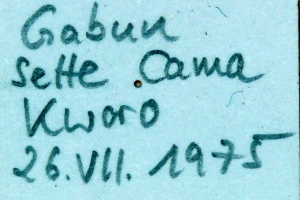 Gabun
Sette Cama
Kworo
26.VII. 1975